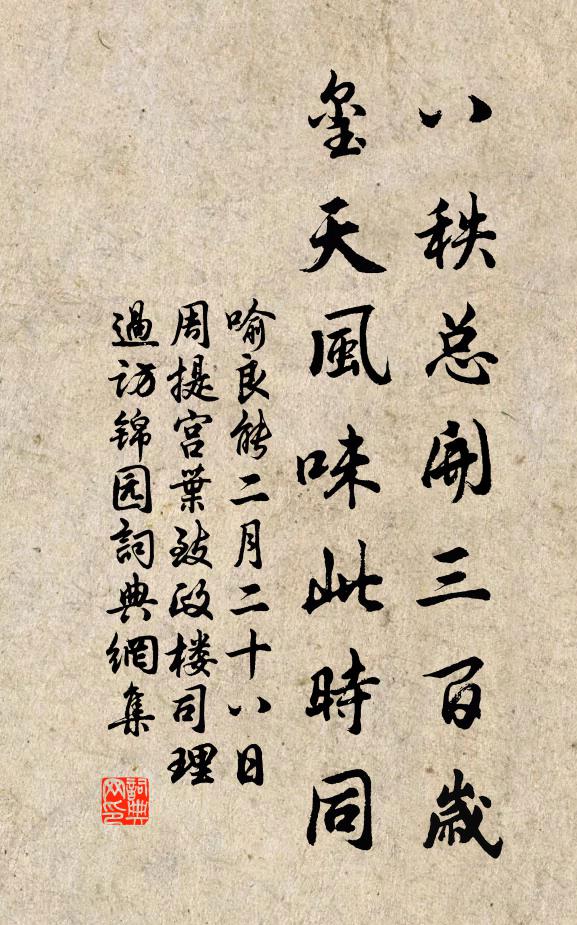 八秩总開三百歲
壐天風味此時同
喻良能二月二十八日
周提宫葉致政楼司理
過訪锦园詞典網集
詞典网印